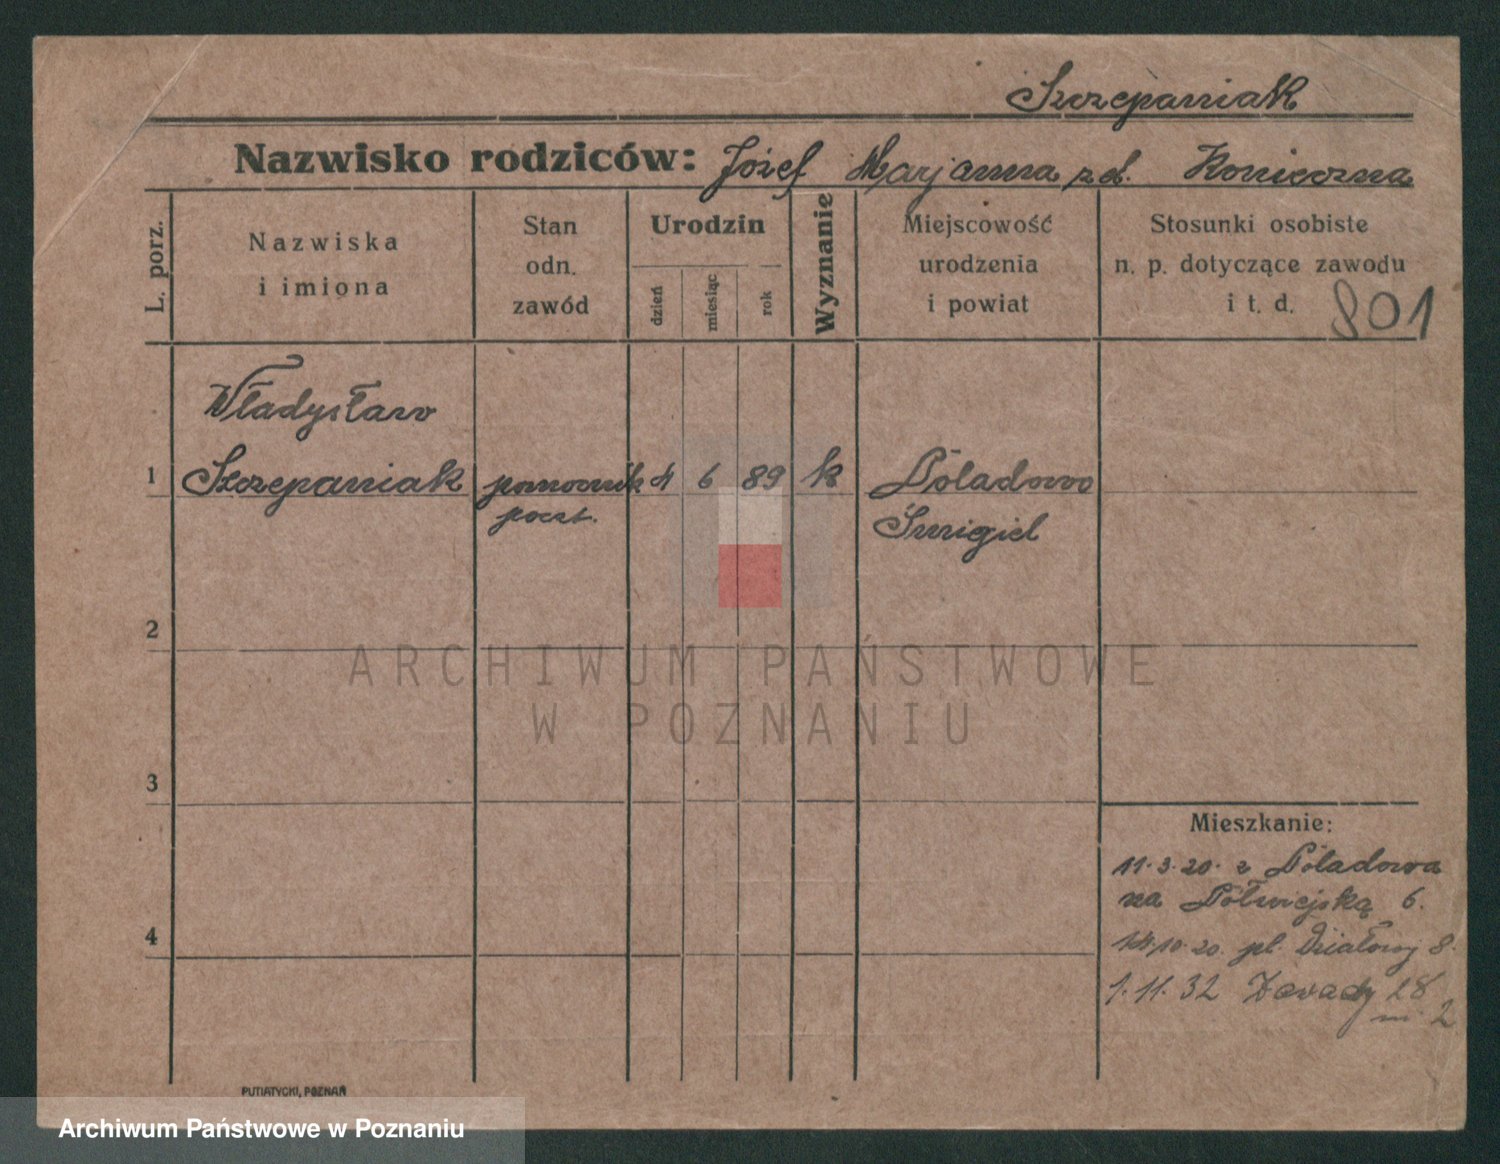 Szczepaniak
Nazwisko rodziców: Józef Marjanna z d. Konieczna
L. porz.
Nazwiska
i imiona
Stan
odn.
zawód
Urodzin
dzień
miesiąc
rok
Wyznanie
Miejscowość
urodzenia
i powiat
Stosunki osobiste
n. p. dotyczące zawodu
i t. d.
801
Władysław
1 Szczepaniak pomocnik 4 6 89 k Poladowo
poczt. Śmigiel
2
3
4
Mieszkanie:
11.3.20. z Poladowa
na Półwiejską 6.
14.10.20. pl. Działowy 8.
1.11.32 Zawady 28
m. 2
PUTIATYCKI, POZNAŃ
ARCHIWUM PAŃSTWOWE
W POZNANIU
Archiwum Państwowe w Poznaniu